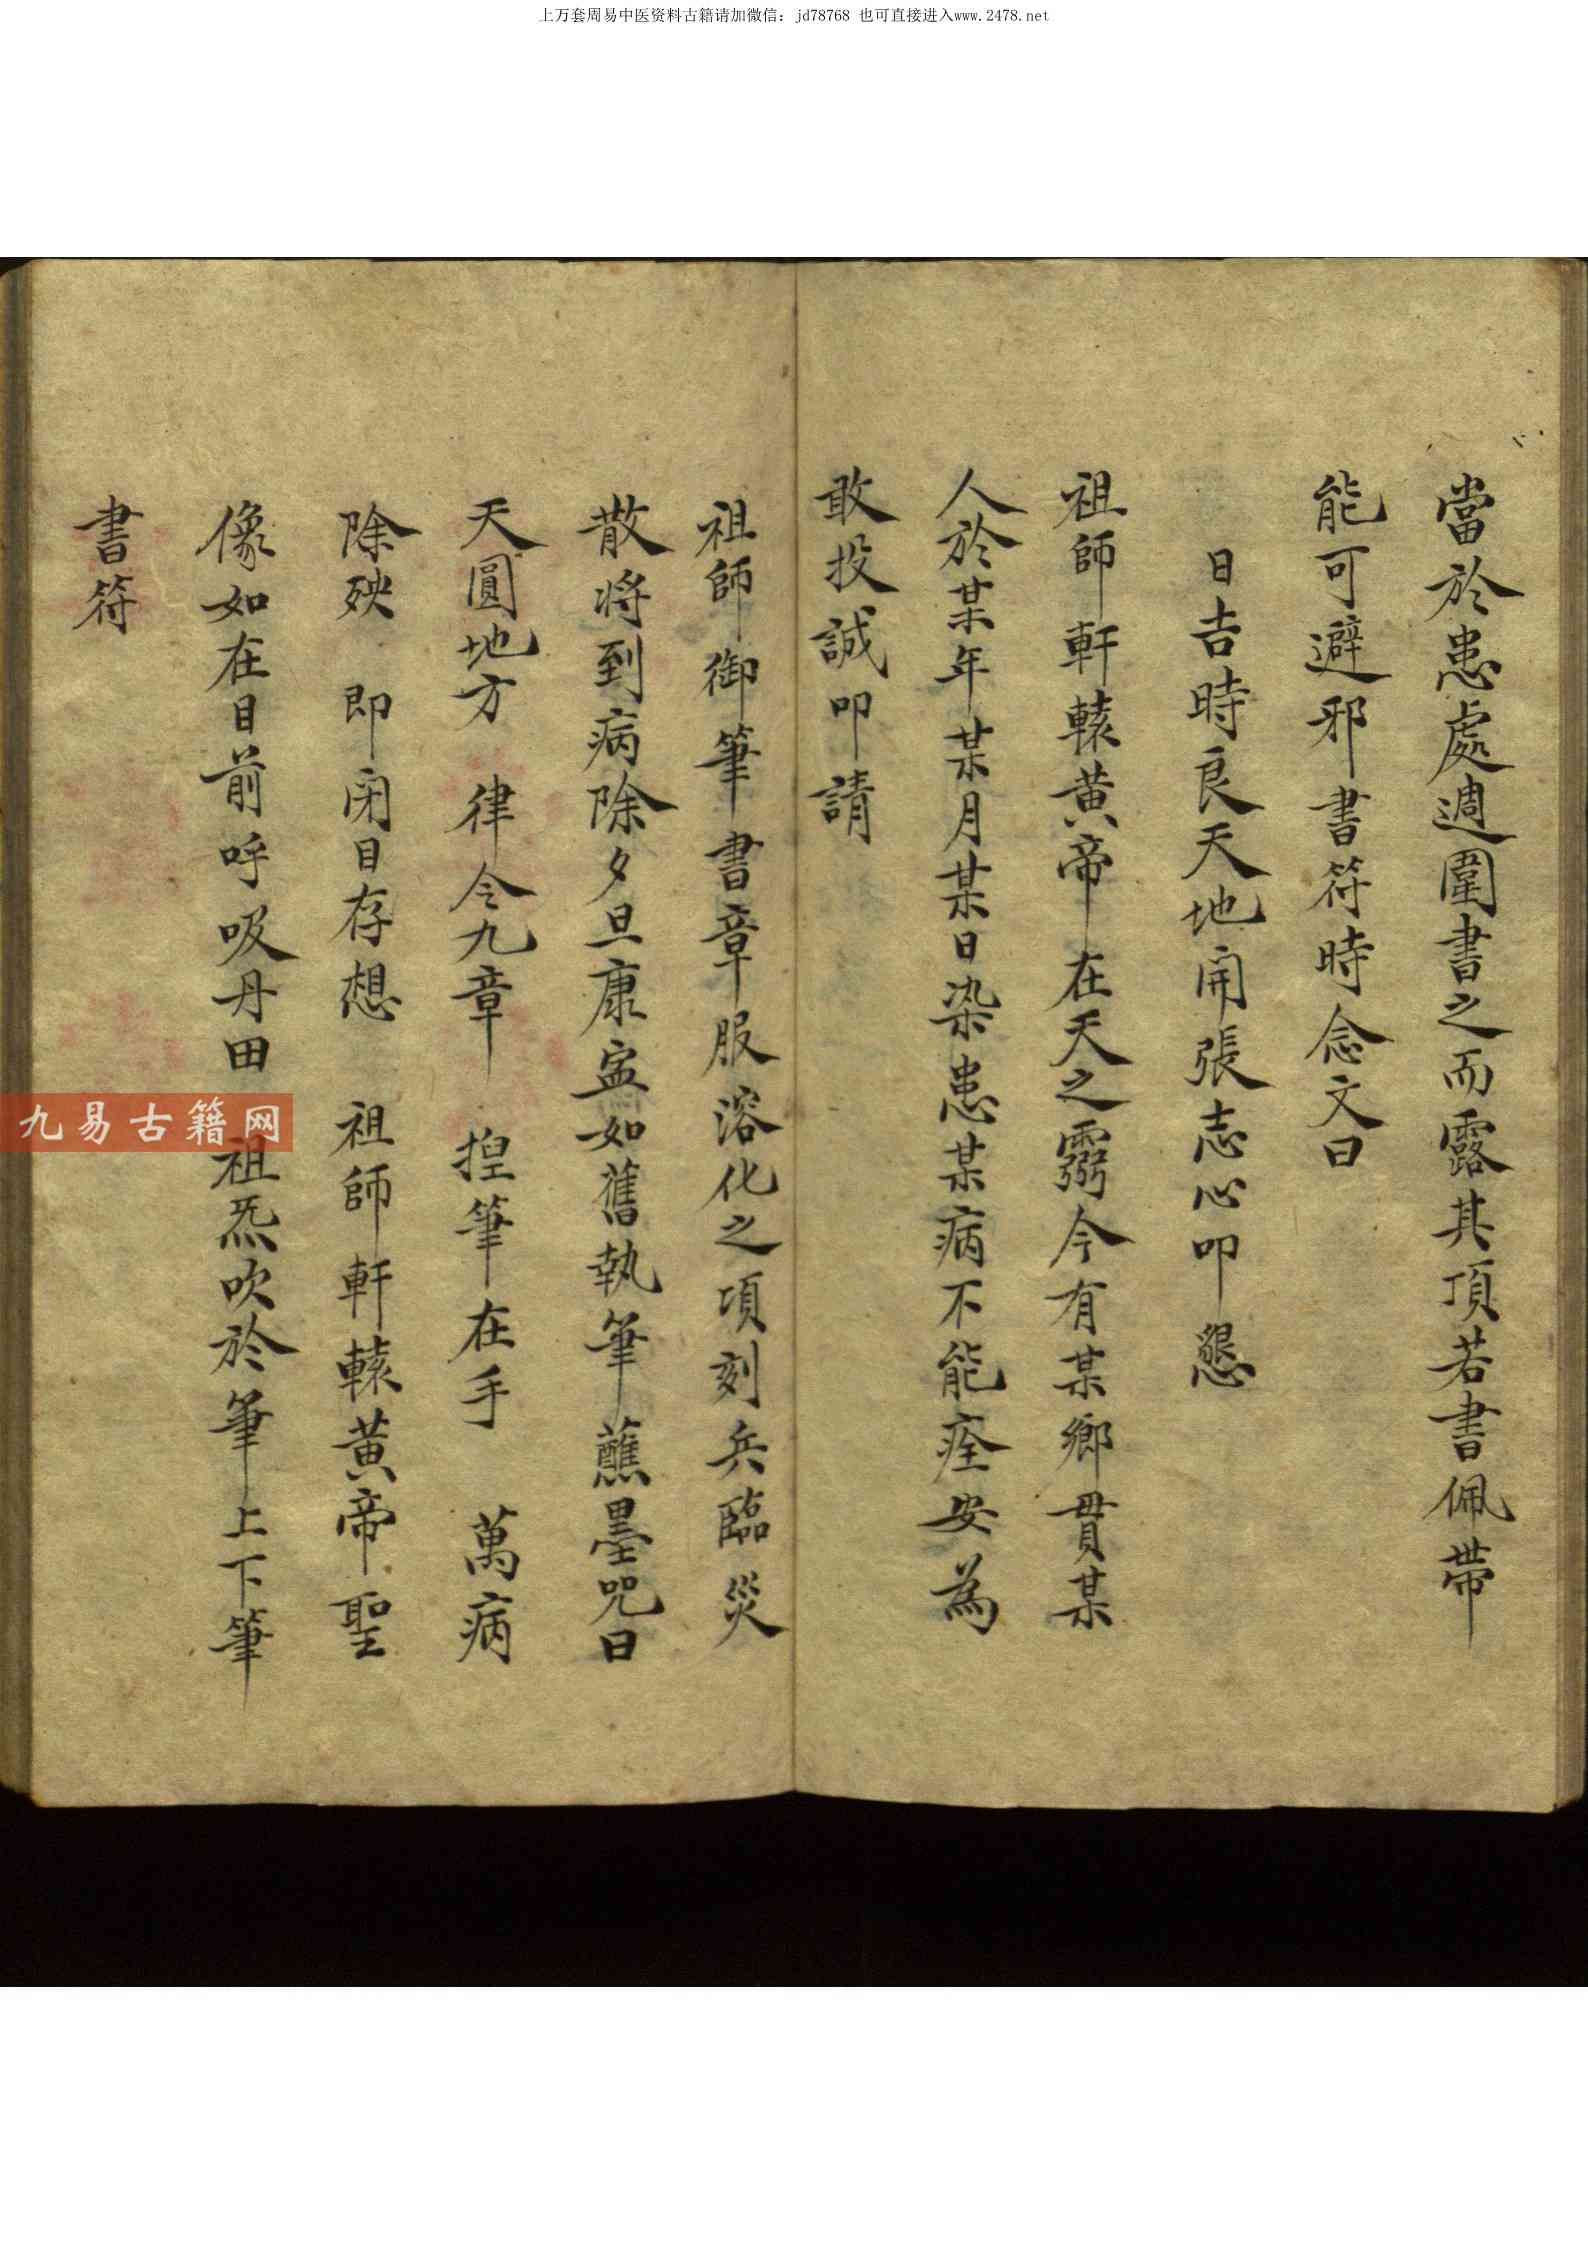 上万套周易中医资料古籍请加微信：jd78768 也可直接进入www.2478.net
當於患處週圍書之而露其項若書佩帶
能可避邪書符時念文曰
日吉時良天地開張志心叩懇
祖師軒轅黄帝在天之靈今有某鄉貫某
人於某年某月某日染患某病不能痊安為
敢投誠叩請
祖師御筆書章服溶化之項刻兵臨災
散將到病除夕旦康寍如舊執筆蘸墨咒曰
天圓地方 律令九章 揑筆在手 萬病
除殃 即闭目存想 祖師軒轅黄帝聖
像如在目前呼吸丹田 祖炁吹於筆上下筆
書符
九易古籍网